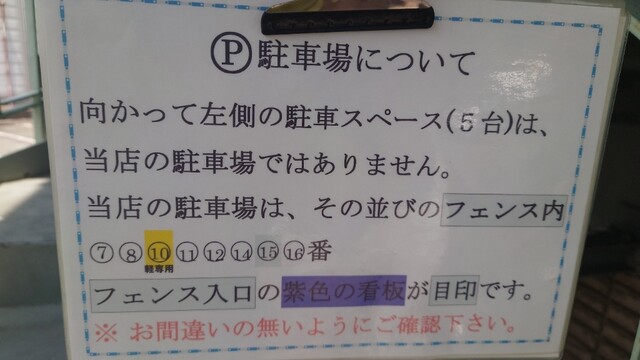 Ⓟ駐車場について
向かって左側の駐車スペース(５台)は、
当店の駐車場ではありません。
当店の駐車場は、その並びのフェンス内
⑦⑧⑩⑪⑫⑭⑮⑯番
軽専用
フェンス入口の紫色の看板が目印です。
※ お間違いの無いようにご確認下さい。